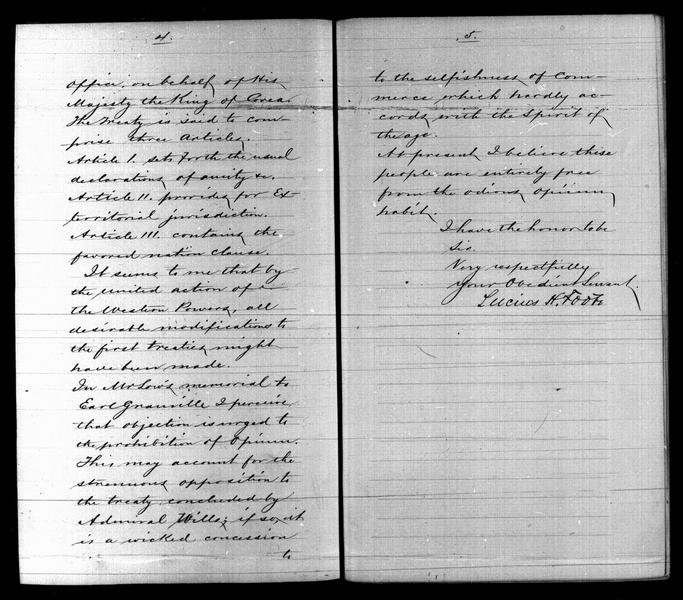 4.
office, on behalf of His
Majesty the King of Corea.
The treaty is said to com-
prise three Articles,
Article I. sets forth the usual
declarations of amity &c.
Article II. provides for Ex-
territorial jurisdiction.
Article III. contains the
favored nation clause.
It seems to me that by
the united action of
the Western Powers, all
desirable modifications to
the first treaties might
have been made.
In Mr Low's memorial to
Earl Granville I perceive
that objection is urged to
the prohibition of Opium.
This may account for the
strenuous opposition to
the treaty concluded by
Admiral Wills; if so, it
is a wicked concession
to
5.
to the selfishness of Com-
merce which hardly ac-
cords with the Spirit of
the age.
At present, I believe these
people are entirely free
from the odious opium
habit.
I have the honor to be
Sir.
Very respectfully
Your Obedient Servant.
Lucius H. Foote